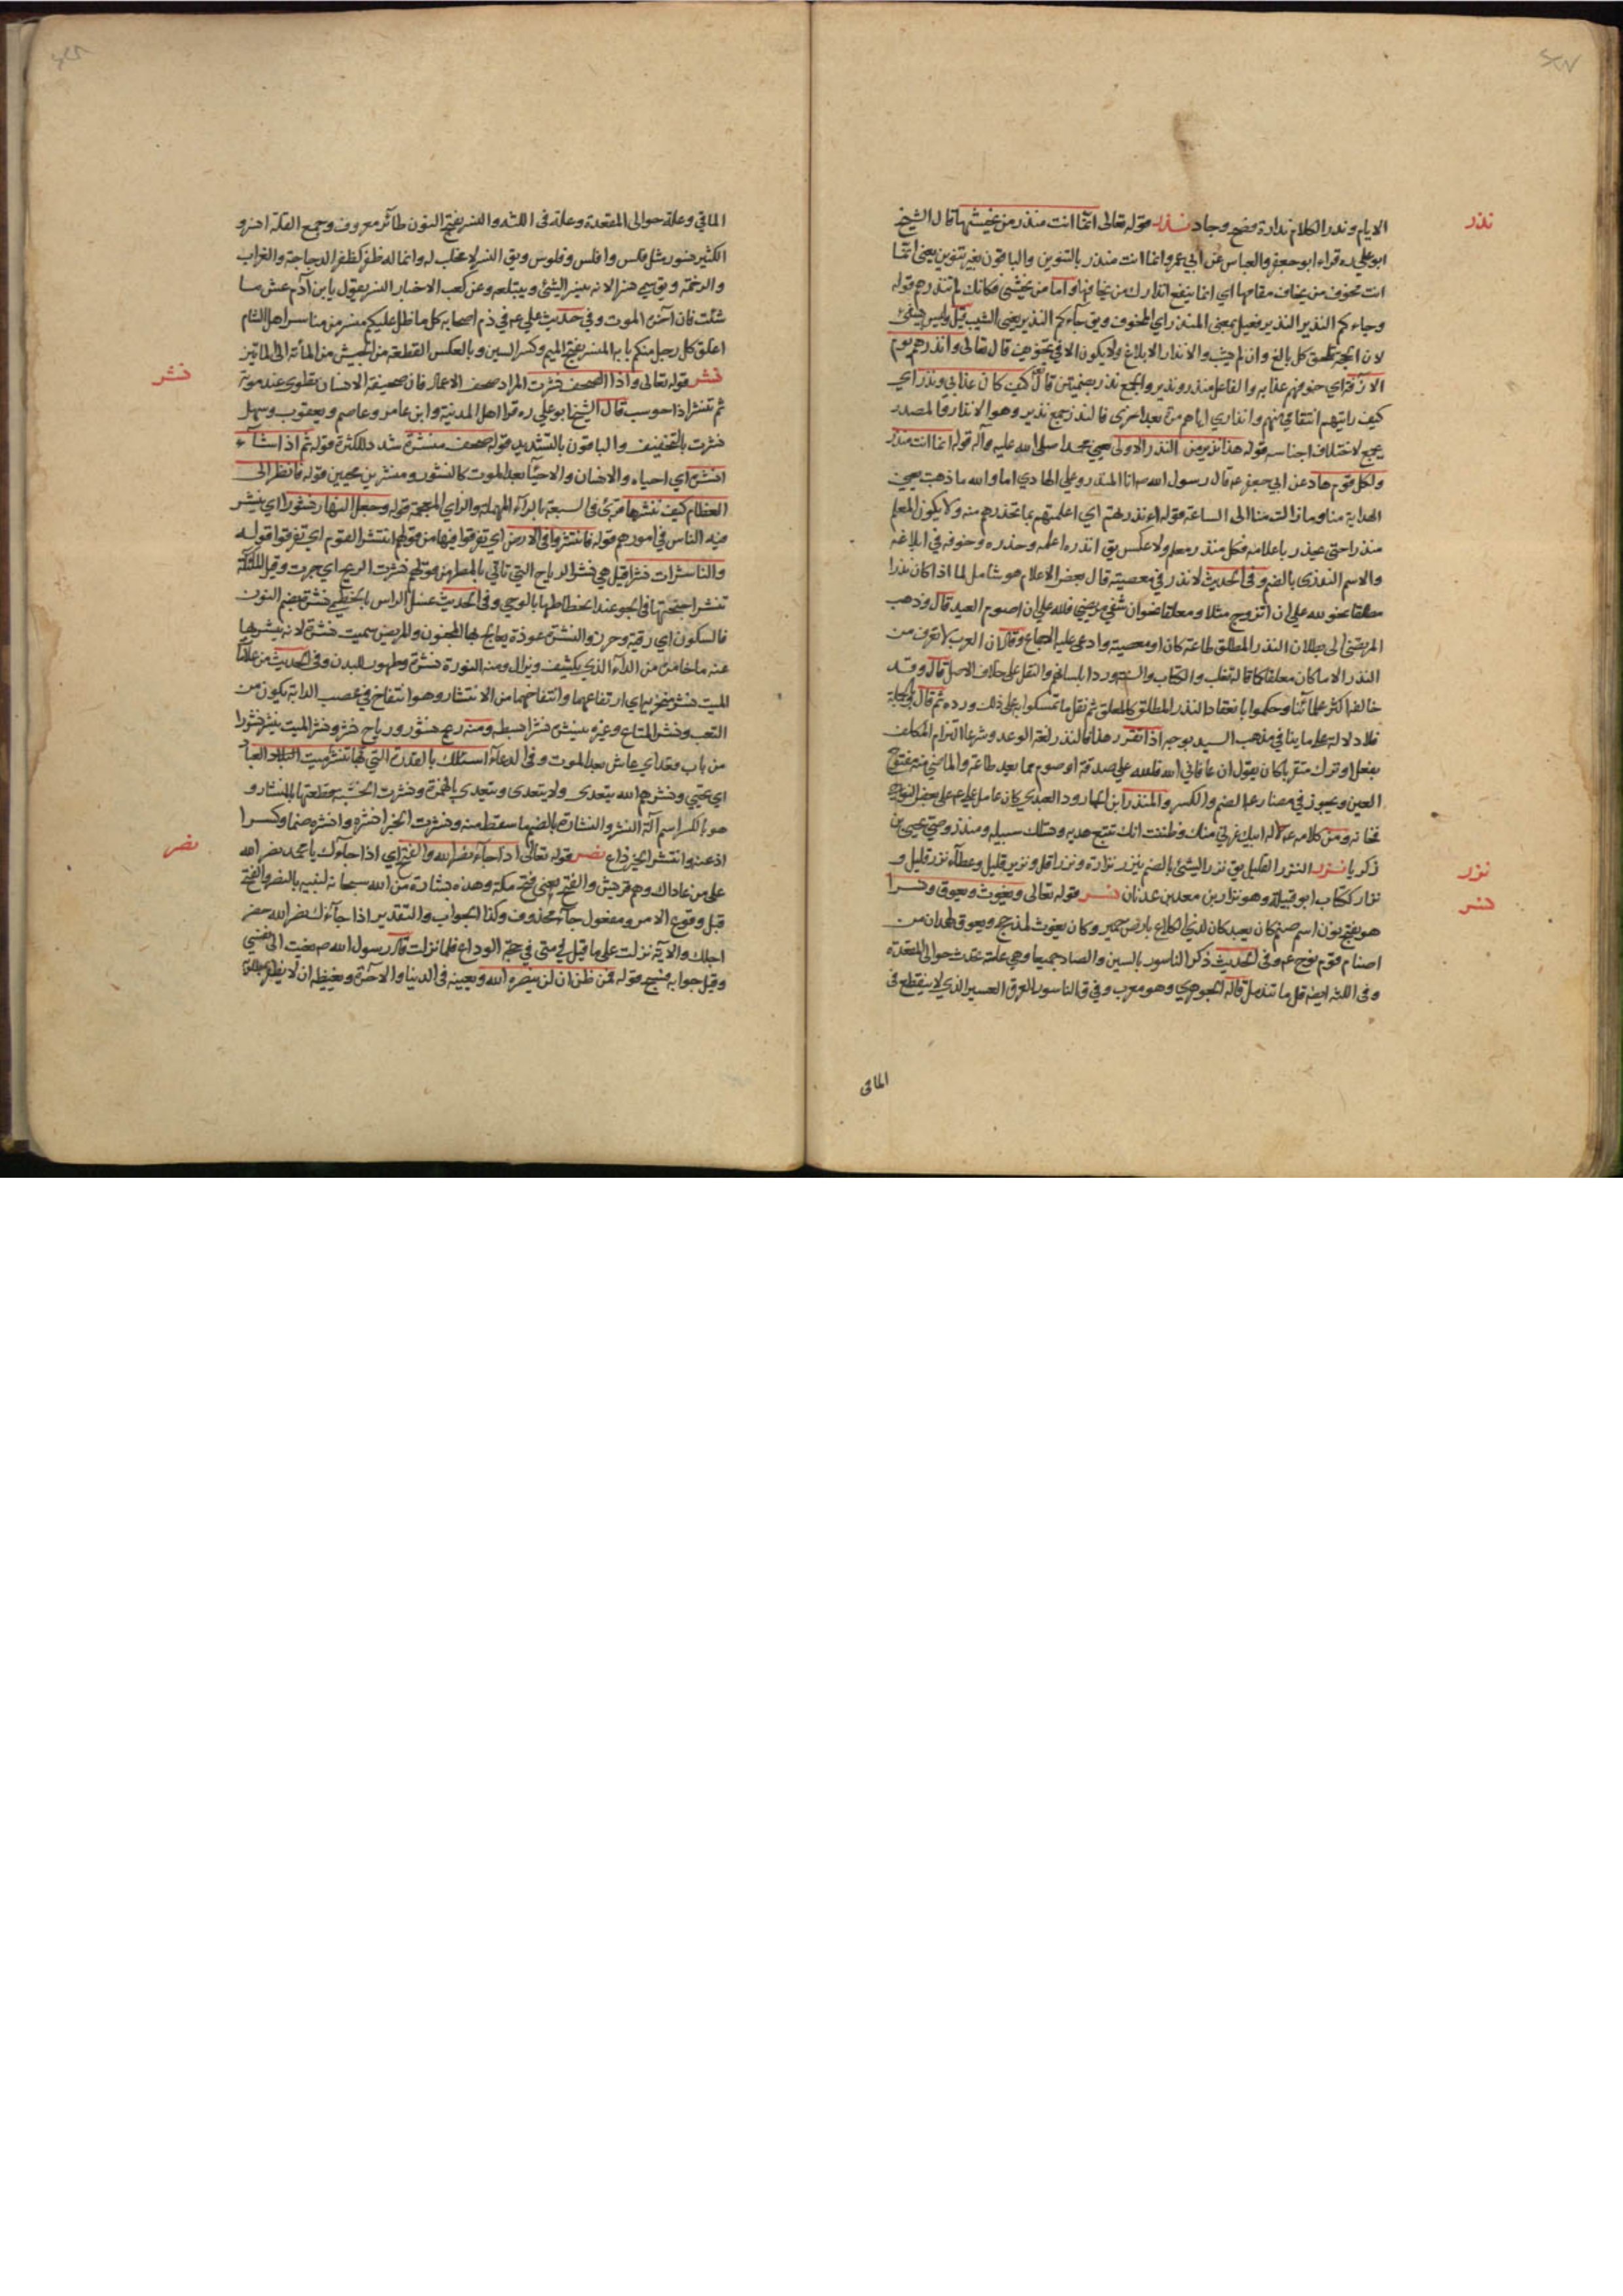 نذر
الايام وندر الكلام ندارة فصح وجاد نذر قوله تعالى انما انت منذر من يخشيها قال الشيخ
ابو علي ره قراء ابو جعفر والعباس عن ابي عمرو انما انت منذر بالتنوين والباقون بغير تنوين يعني انما
انت مخوف من يخاف مقامها اي انما ينفع انذارك من يخافها واما من يخشى فكانك لم تنذرهم قوله
وجاءكم النذير النذير فعيل بمعنى المنذر اي المخوف ويق جاءكم النذير يعني الشيب قيل وليس بشئ
لان الحجة تلحق كل بالغ وان لم يشب والانذار الابلاغ ولا يكون الا في تخويف قال تعالى وانذرهم يوم
الازفة اي خوفهم عذابه والفاعل منذر ونذير والجمع نذر بضمتين قال كيف كان عذابي ونذر اي
كيف رايتهم انتقامي منهم وانذاري اياهم مرة بعد اخرى فالنذر جمع نذير وهو الانذار والمصدر
يجمع لاختلاف اجناسه قوله هذا نذير من النذر الاولى يعني محمدا صلى الله عليه وآله قوله انما انت منذر
ولكل قوم هاد عن ابي جعفر ع قال رسول الله ص انا المنذر وعلي الهادي اما والله ما ذهبت يعني
الهداية منا وما زالت منا الى الساعة قوله ءانذرتهم اي اعلمتهم بما تحذرهم منه ولا يكون المعلم
منذرا حتى يحذر باعلامه فكل منذر معلم ولا عكس يق انذره اعلمه وحذره وخوفه في ابلاغه
والاسم النذرى بالضم وفي الحديث لا نذر في معصية قال بعض الاعلام هو شامل لما اذا كان نذرا
مطلقا نحو لله علي ان اتزوج مثلا ومعلقا نحو ان شفي مريضي فلله علي ان اصوم العيد قال وذهب
المرتضى الى بطلان النذر المطلق طاعة كان او معصية وادعى عليه الاجماع وقال ان العرب لا تعرف من
النذر الا ما كان معلقا كما قاله ثعلب والكتاب والسنة وردا بلسانهم والنقل على خلاف الاصل قال وقد
خالفه اكثر علمائنا وحكموا بانعقاد النذر المطلق كالمعلق ثم نقل ما تمسكوا به على ذلك ورده ثم قال وبالجملة
فلا دلالة على ما ينافي مذهب السيد بوجه اذا تقرر هذا فالنذر لغة الوعد وشرعا التزام المكلف
بفعل او ترك متقربا كان يقول ان عافاني الله فلله علي صدقة او صوم مما يعد طاعة والماضي منه مفتوح
العين ويجوز في مضارعه الضم والكسر والمنذر ابن الجارود العبدي كان عامل علي ع على بعض النواحي
فخانه ومن كلامه ع له ابيك غرني منك وظننت انك تتبع هديه وتسلك سبيله ومنذر وصي يحيى بن
زكريا نزر النزر القليل يق نزر الشئ بالضم ينزر نزارة ونزرا قل ونزير قليل وعطاء نزر قليل و
نزر
نزار ككتاب ابو قبيلة وهو نزار بن معد بن عدنان نسر قوله تعالى ويغوث ويعوق ونسرا
نسر
هو بفتح نون اسم صنم كان يعبد كان لذي الكلاع بارض حمير وكان يغوث لمذحج ويعوق لهمدان من
اصنام قوم نوح ع وفي الحديث ذكر الناسور بالسين والصاد جميعا وهي علة تحدث حوالى المقعدة
وفي اللثه ايضا قل ما تندمل قاله الجوهري وهو معرب وفي ق الناسور العرق الغبر الذي لا ينقطع في
الماقي
الماقي وعلة حوالى المقعدة وعلة في اللثه والنسر بفتح النون طائر معروف وجمع القلة انسر و
الكثير نسور مثل فلس وافلس وفلوس ويق النسر لا مخلب له وانما له ظفر كظفر الدجاجة والغراب
والرخمة ويق سمي نسرا لانه ينسر الشئ ويبتلعه وعن كعب الاحبار النسر يقول يا بن آدم عش ما
شئت فان آخرك الموت وفي حديث علي ع في ذم اصحابه كل ما اظل عليكم منسر من مناسر اهل الشام
اغلق كل رجل منكم بابه المنسر بفتح الميم وكسر السين وبالعكس القطعة من الجيش من المأة الى المأتين
نشر
نشر قوله تعالى واذا الصحف نشرت المراد صحف الاعمال فان صحيفة الانسان تطوى عند موته
ثم تنشر اذا حوسب قال الشيخ ابو علي ره قرا اهل المدينة وابن عامر وعاصم ويعقوب وسهل
نشرت بالتخفيف والباقون بالتشديد قوله صحف منشرة شدد للكثرة قوله ثم اذا شاء
انشره اي احياه والانسان والاحيآ بعد الموت كالنشور ومنشرين محيين قوله فانظر الى
العظام كيف ننشرها قرئ في السبعة بالرآء المهملة والزاي المعجمة قوله وجعل النهار نشورا اي ينشر
فيه الناس في امورهم قوله فانتشروا في الارض اي تفرقوا فيها من قولهم انتشر القوم اي تفرقوا قوله
والناشرات نشرا قيل هي نشر الرياح التي تاتي بالمطر من قولهم نشرت الريح اي جرت وقيل الملئكة
تنشر اجنحتها في الجو عند انحطاطها بالوحي وفي الحديث غسل الراس بالخطمي نشرة بضم النون
فالسكون اي رقية وحرز والنشرة عوذة يعالج بها المجنون والمريض سميت نشرة لانه ينشر بها
عنه ما خامره من الداء الذي يكشف ويزال ومنه النورة نشرة وطهور للبدن وفي الحديث من علامة
الميت نشر منخريه اي ارتفاعهما وانتفاخهما من الانتشار وهو انتفاخ في عصب الدابة يكون من
التعب ونشر المتاع وغيره ينشره نشرا بسطه ومنه ريح نشور ورياح نشر ونشر الميت ينشر نشورا
من باب قعد اي عاش بعد الموت وفي الدعاء اسئلك بالقدرة التي بها تنشر ميت البلاد العباد
اي تحيي ونشرهم الله يتعدى ولا يتعدى ويتعدى بالهمزة ونشرت الخشبة قطعتها بالمنشار و
هو بالكسر اسم آلة النشر والنشارة بالضم ما سقط منه ونشرت الخبر انشره وانشره ضما وكسرا
اذعته وانتشر الخبر ذاع نصر قوله تعالى اذا جاء نصر الله والفتح اي اذا جاءك يا محمد نصر الله
نصر
على من عاداك وهم قريش والفتح يعني فتح مكة وهذه بشارة من الله سبحانه لنبيه بالنصر والفتح
قبل وقوع الامر ومفعول جاء محذوف وكذا الجواب والتقدير اذا جاءك نصر الله حضر
اجلك والآية نزلت على ما قيل في منى في حجة الوداع فلما نزلت قال رسول الله ص نعيت الى نفسي
وقيل جوابه فسبح قوله فمن ظن ان لن ينصره الله ويعينه في الدنيا والآخرة ويغيظه ان لا يظفر بمطلوبه